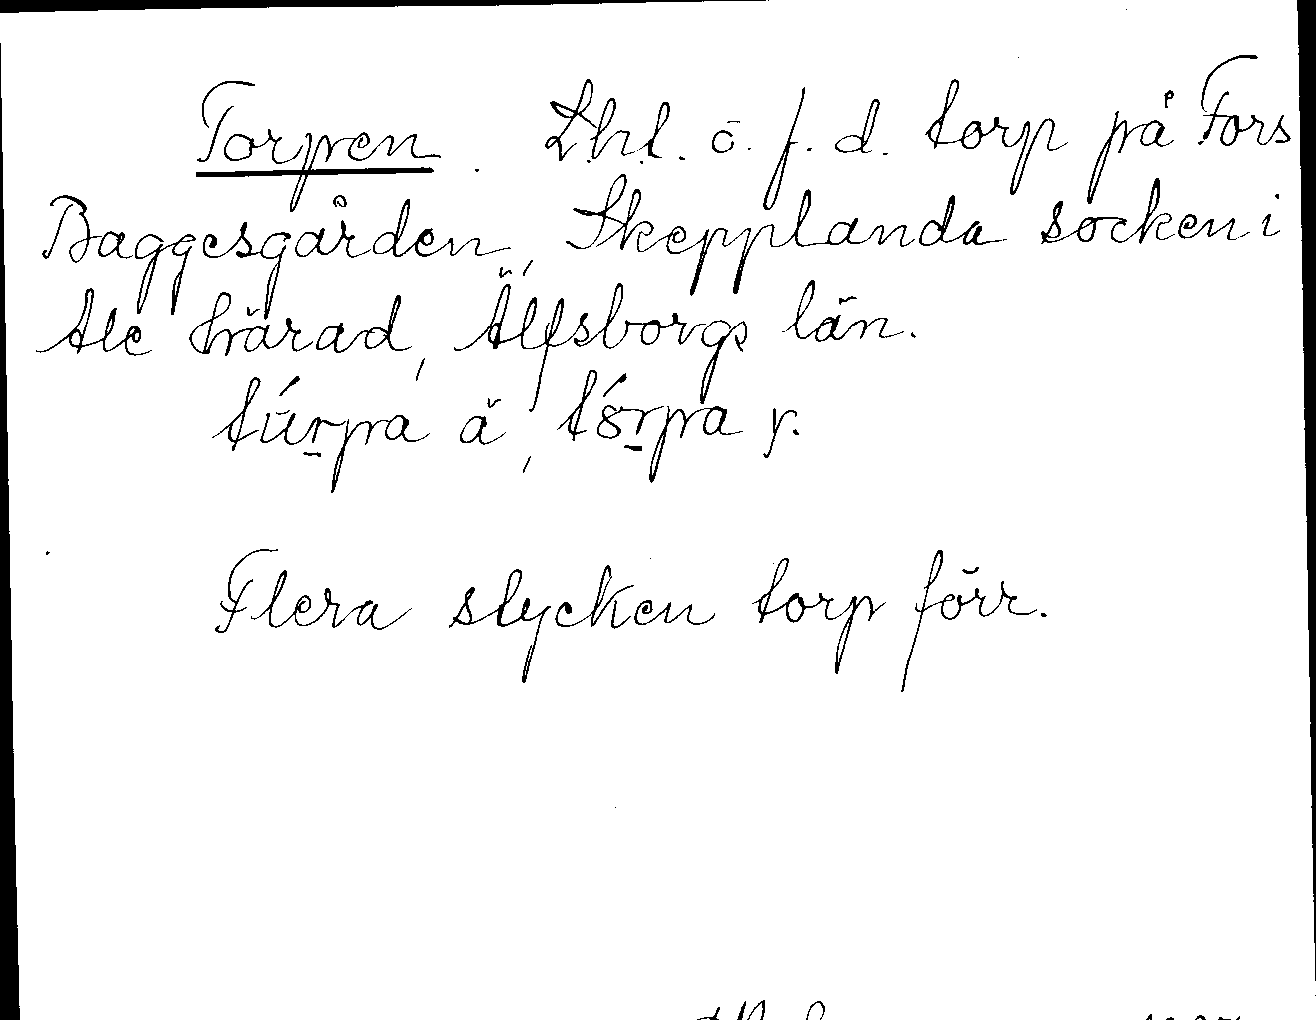 Torpen. Lhl. o. f. d. torp på Fors
Baggesgården, Skepplanda socken i
Ale härad, Älfsborgs län.
túrpa ä, tórpa y.
Flera stycken torp förr.